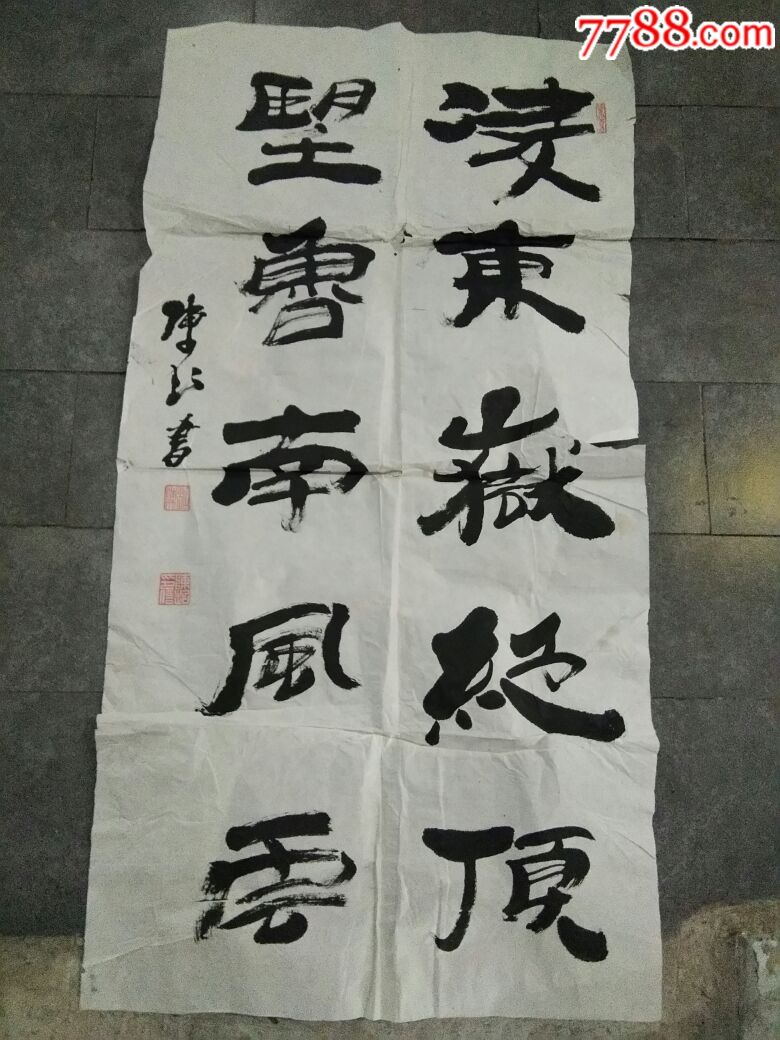 7788.com
凌東嶽絕頂
望魯南風雲
陳江書